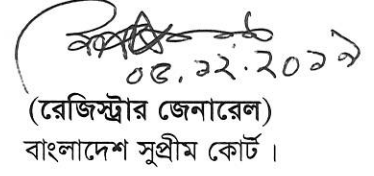 ০৫.১২.২০১৯
(রেজিস্ট্রার জেনারেল)
বাংলাদেশ সুপ্রীম কোর্ট ।